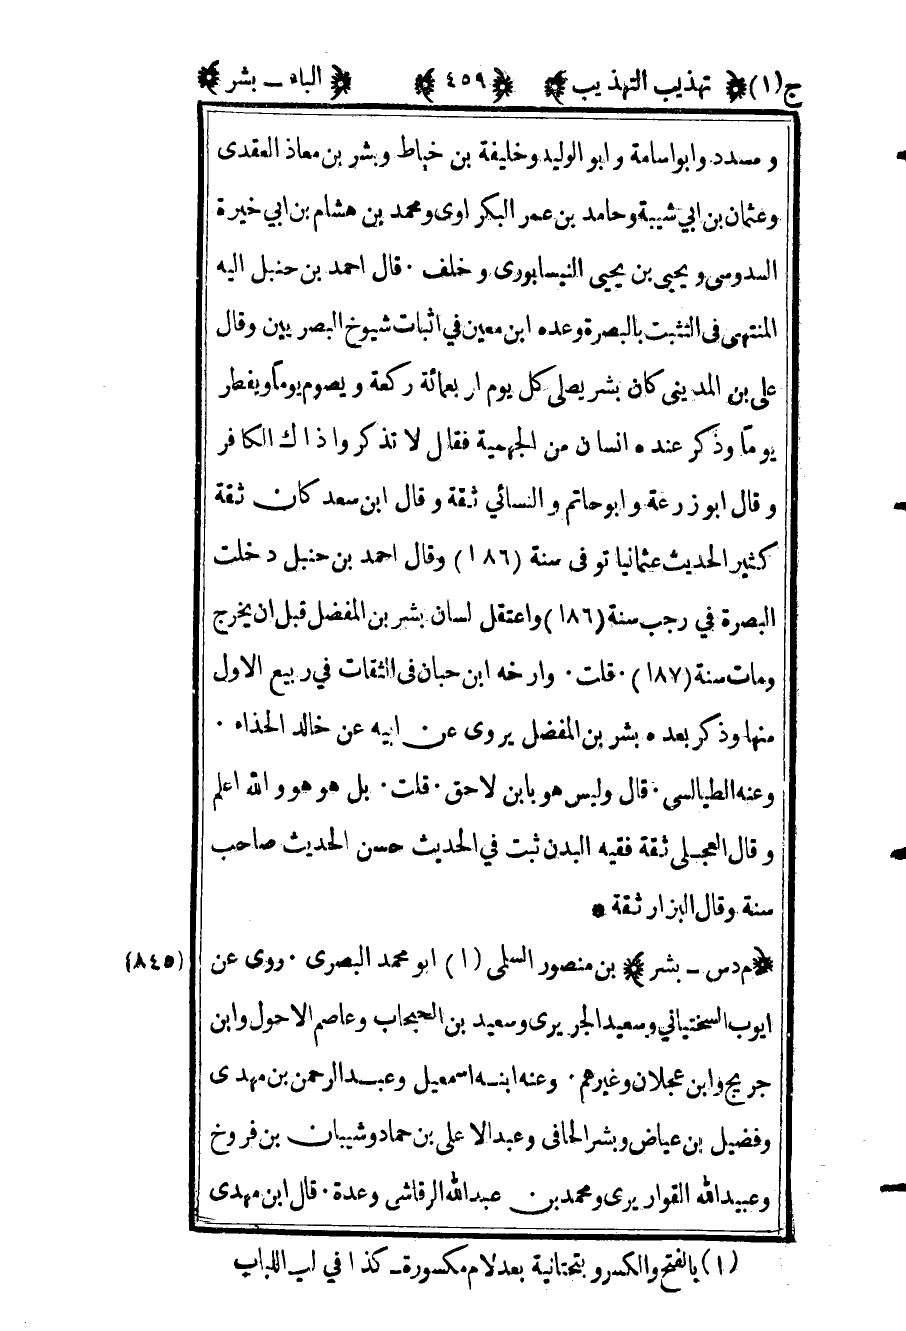 ج(١) ﴿ تهذيب التهذيب ﴾ ﴿ ٤٥٩ ﴾ ﴿ الباء ـ بشر ﴾
و مسدد وابواسامة و ابو الوليد وخليفة بن خياط وبشر بن معاذ العقدى
وعثمان بن ابي شيبة وحامد بن عمر البكراوى ومحمد بن هشام بن ابي خيرة
السدوسى و يحيى بن يحيى النيسابورى و خلف ٠ قال احمد بن حنبل اليه
المنتهى فى التثبت بالبصرة وعده ابن معين في اثبات شيوخ البصريين وقال
على بن المدينى كان بشر يصلى كل يوم اربعمائة ركعة و يصوم يوماً ويفطر
يوماً وذكر عنده انسان من الجهمية فقال لا تذكروا ذاك الكافر
و قال ابو زرعة و ابو حاتم و النسائي ثقة و قال ابن سعد كان ثقة
كثير الحديث عثمانيا توفى سنة (١٨٦) وقال احمد بن حنبل دخلت
البصرة في رجب سنة (١٨٦) واعتقل لسان بشر بن المفضل قبل ان يخرج
ومات سنة (١٨٧) ٠ قلت ٠ وارخه ابن حبان فى الثقات في ربيع الاول
منها وذكر بعده بشر بن المفضل يروى عن ابيه عن خالد الحذاء ٠
وعنه الطيالسى ٠ قال وليس هو بابن لاحق ٠ قلت ٠ بل هو هو و الله اعلم
و قال العجلى ثقة فقيه البدن ثبت في الحديث حسن الحديث صاحب
سنة وقال البزار ثقة *
﴿ م د س ـ بشر ﴾ بن منصور السلمى (١) ابو محمد البصرى ٠ روى عن (٨٤٥)
ايوب السختياني وسعيد الجريرى وسعيد بن الحبحاب وعاصم الاحول وابن
جريج وابن عجلان وغيرهم ٠ وعنه ابنه اسمعيل وعبد الرحمن بن مهدى
وفضيل بن عياض وبشر الحافى وعبد الاعلى بن حماد وشيبان بن فروخ
وعبيد الله القواريرى ومحمد بن عبد الله الرقاشى وعدة ٠ قال ابن مهدى
(١) بالفتح والكسر و بتحتانية بعد لام مكسورة ـ كذا في لب اللباب